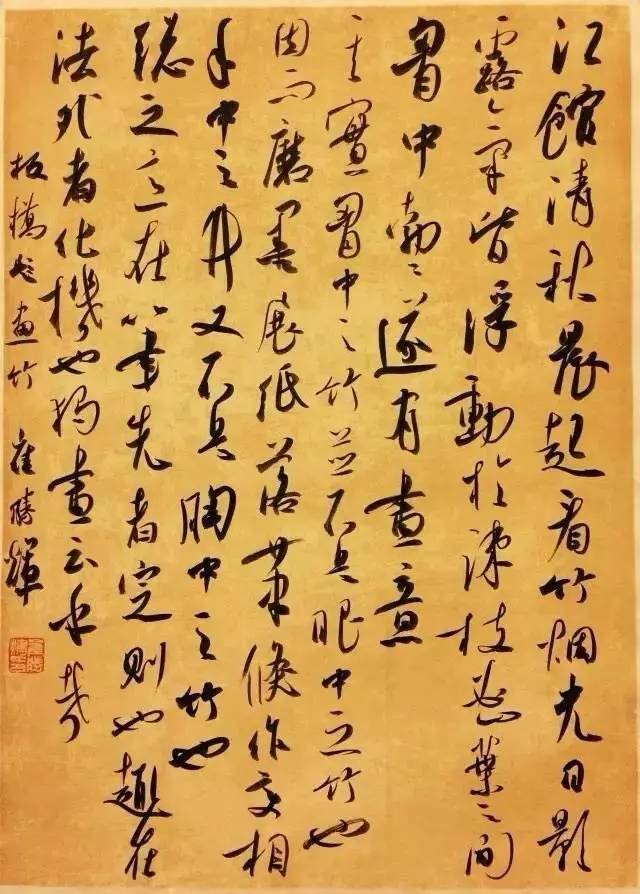 江館清秋晨起看竹烟光日影
露氣皆浮動於疎枝密葉之間
胷中勃〻遂有畫意
其實胷中之竹並不是眼中之竹也
因而磨墨展紙落筆倏作变相
手中之竹又不是胸中之竹也
總之意在筆先者定則也趣在
法外者化機也獨畫云乎哉
板橋題畫竹 崔勝輝